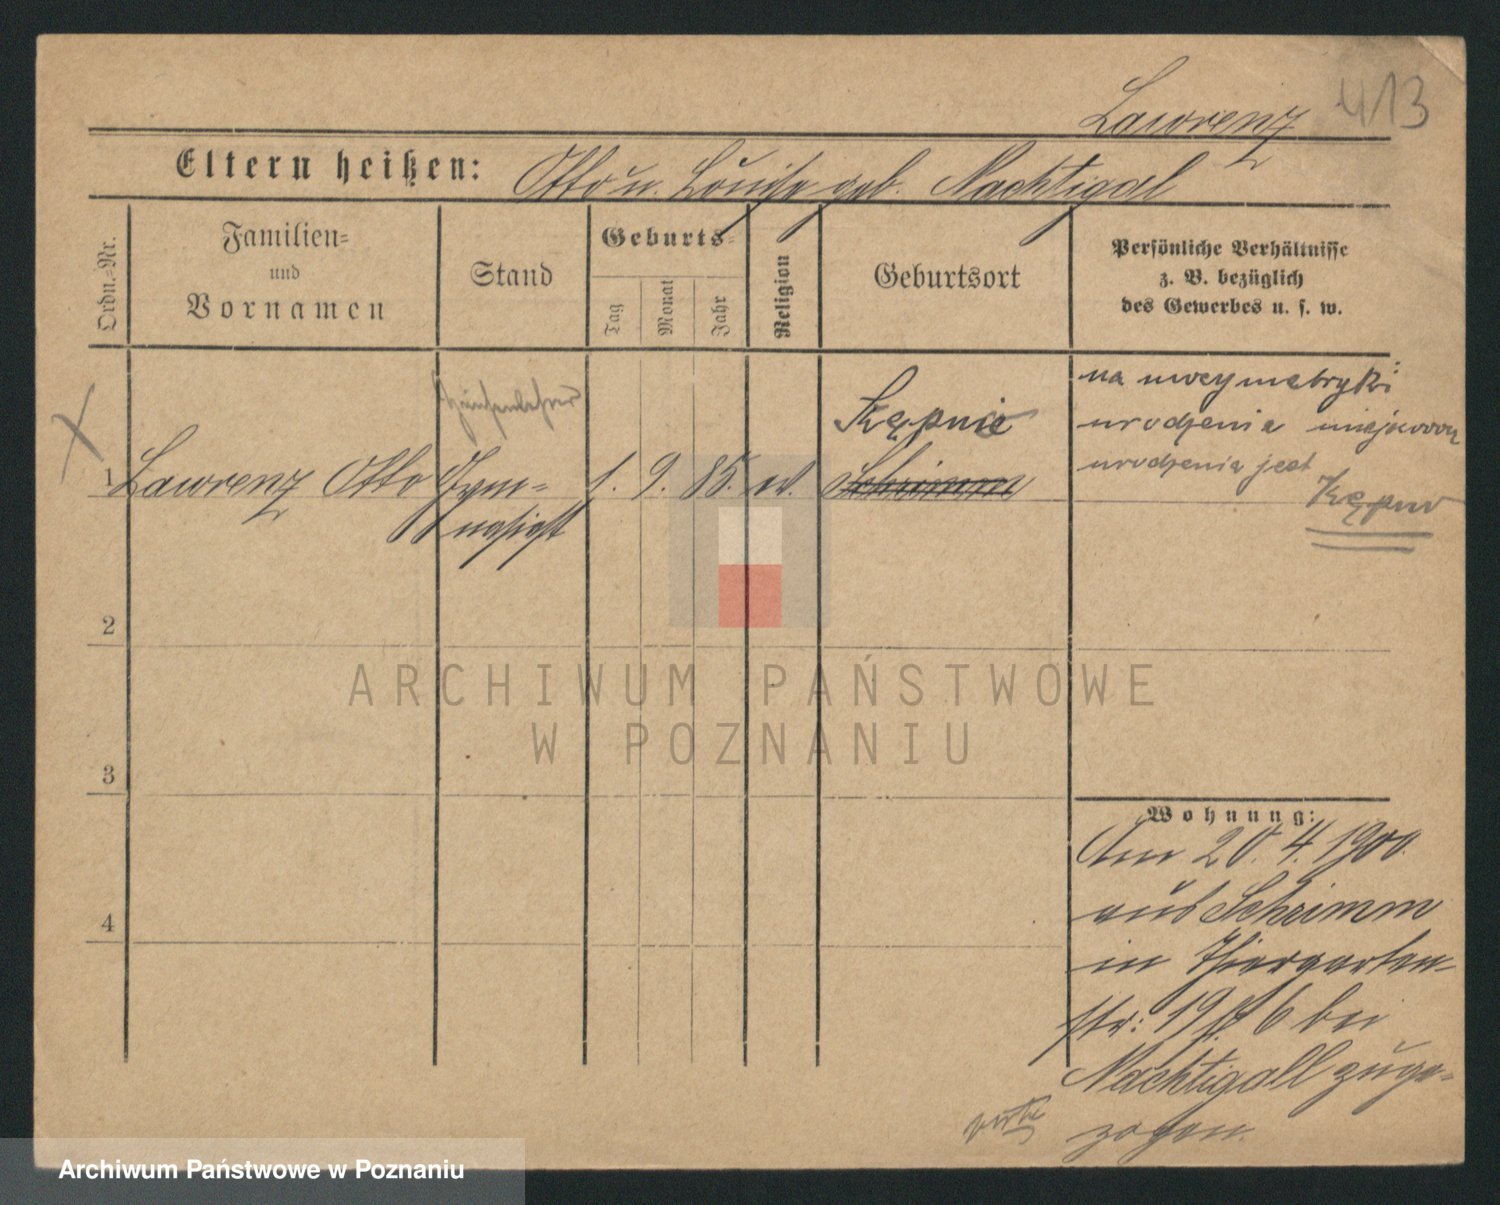 Lawrenz 413
Eltern heißen: Otto u. Louise geb. Nachtigal
Ordn.=Nr.
Familien=
und
Vornamen
Stand
Geburts=
Tag
Monat
Jahr
Religion
Geburtsort
Persönliche Verhältnisse
z. B. bezüglich
des Gewerbes u. s. w.
na mocy metryki
urodzenia miejscową
urodzenia jest
Kępno
Kępnie
1 Lawrenz Otto Gym= 1. 9. 85. ev. Schrimm
nasiast
2
3
4
Wohnung:
Am 20. 4. 1900.
aus Schrimm
in Thiergarten=
str: 19 6 bei
Nachtigall zuge=
zogen.
ARCHIWUM PAŃSTWOWE
W POZNANIU
Archiwum Państwowe w Poznaniu